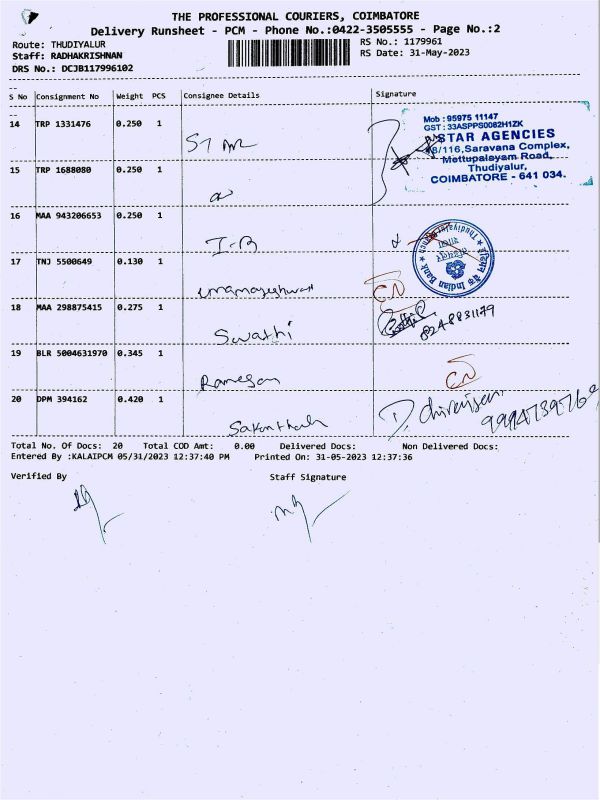 THE PROFESSIONAL COURIERS, COIMBATORE
Delivery Runsheet - PCM - Phone No.:0422-3505555 - Page No.:2
Route: THUDIYALUR
RS No.: 1179961
Staff: RADHAKRISHNAN
RS Date: 31-May-2023
DRS No.: DCJB117996102
S No Consignment No Weight PCS Consignee Details Signature
14 TRP 1331476 0.250 1 STAR
Mob : 95975 11147
GST : 33ASPPS0082H1ZK
STAR AGENCIES
8/116, Saravana Complex,
Mettupalayam Road,
Thudiyalur,
COIMBATORE - 641 034.
15 TRP 1688080 0.250 1
16 MAA 943206653 0.250 1 I-B
Indian Bank
17 TNJ 5500649 0.130 1
CN
18 MAA 298875415 0.275 1 Swathi
8248831179
19 BLR 5004631970 0.345 1 Ramesan
CN
20 DPM 394162 0.420 1
Total No. Of Docs: 20 Total COD Amt: 0.00 Delivered Docs: Non Delivered Docs:
Entered By :KALAIPCM 05/31/2023 12:37:40 PM Printed On: 31-05-2023 12:37:36
Verified By Staff Signature